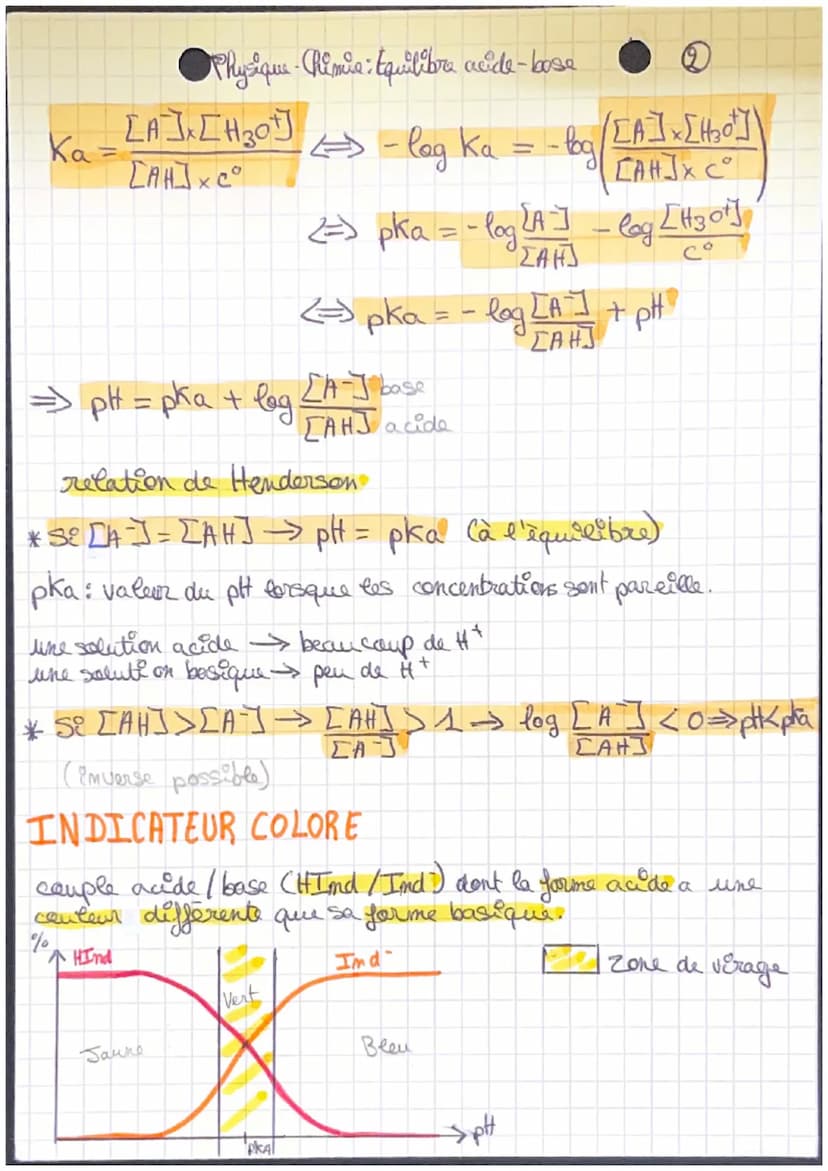 Physique-Chimie: Equilibre acide-base ②
Ka = [A⁻]×[H₃O⁺] / [AH]×c° ⇔ -log Ka = -log([A⁻]×[H₃O⁺] / [AH]×c°)
⇔ pKa = -log [A⁻]/[AH] - log [H₃O⁺]/c°
⇔ pKa = - log [A⁻]/[AH] + pH
⇒ pH = pKa + log [A⁻]/[AH] base acide
relation de Henderson
* Si [A⁻] = [AH] → pH = pKa (à l'équilibre)
pKa : valeur du pH lorsque les concentrations sont pareille.
une solution acide → beaucoup de H⁺
une solution basique → peu de H⁺
* Si [AH] > [A⁻] → [AH]/[A⁻] > 1 → log [A⁻]/[AH] < 0 ⇒ pH < pKa
(inverse possible)
INDICATEUR COLORE
couple acide / base (HInd / Ind⁻) dont la forme acide a une
couleur différente que sa forme basique.
% HInd Ind⁻ zone de virage
Vert
Jaune Bleu
pH
pKA